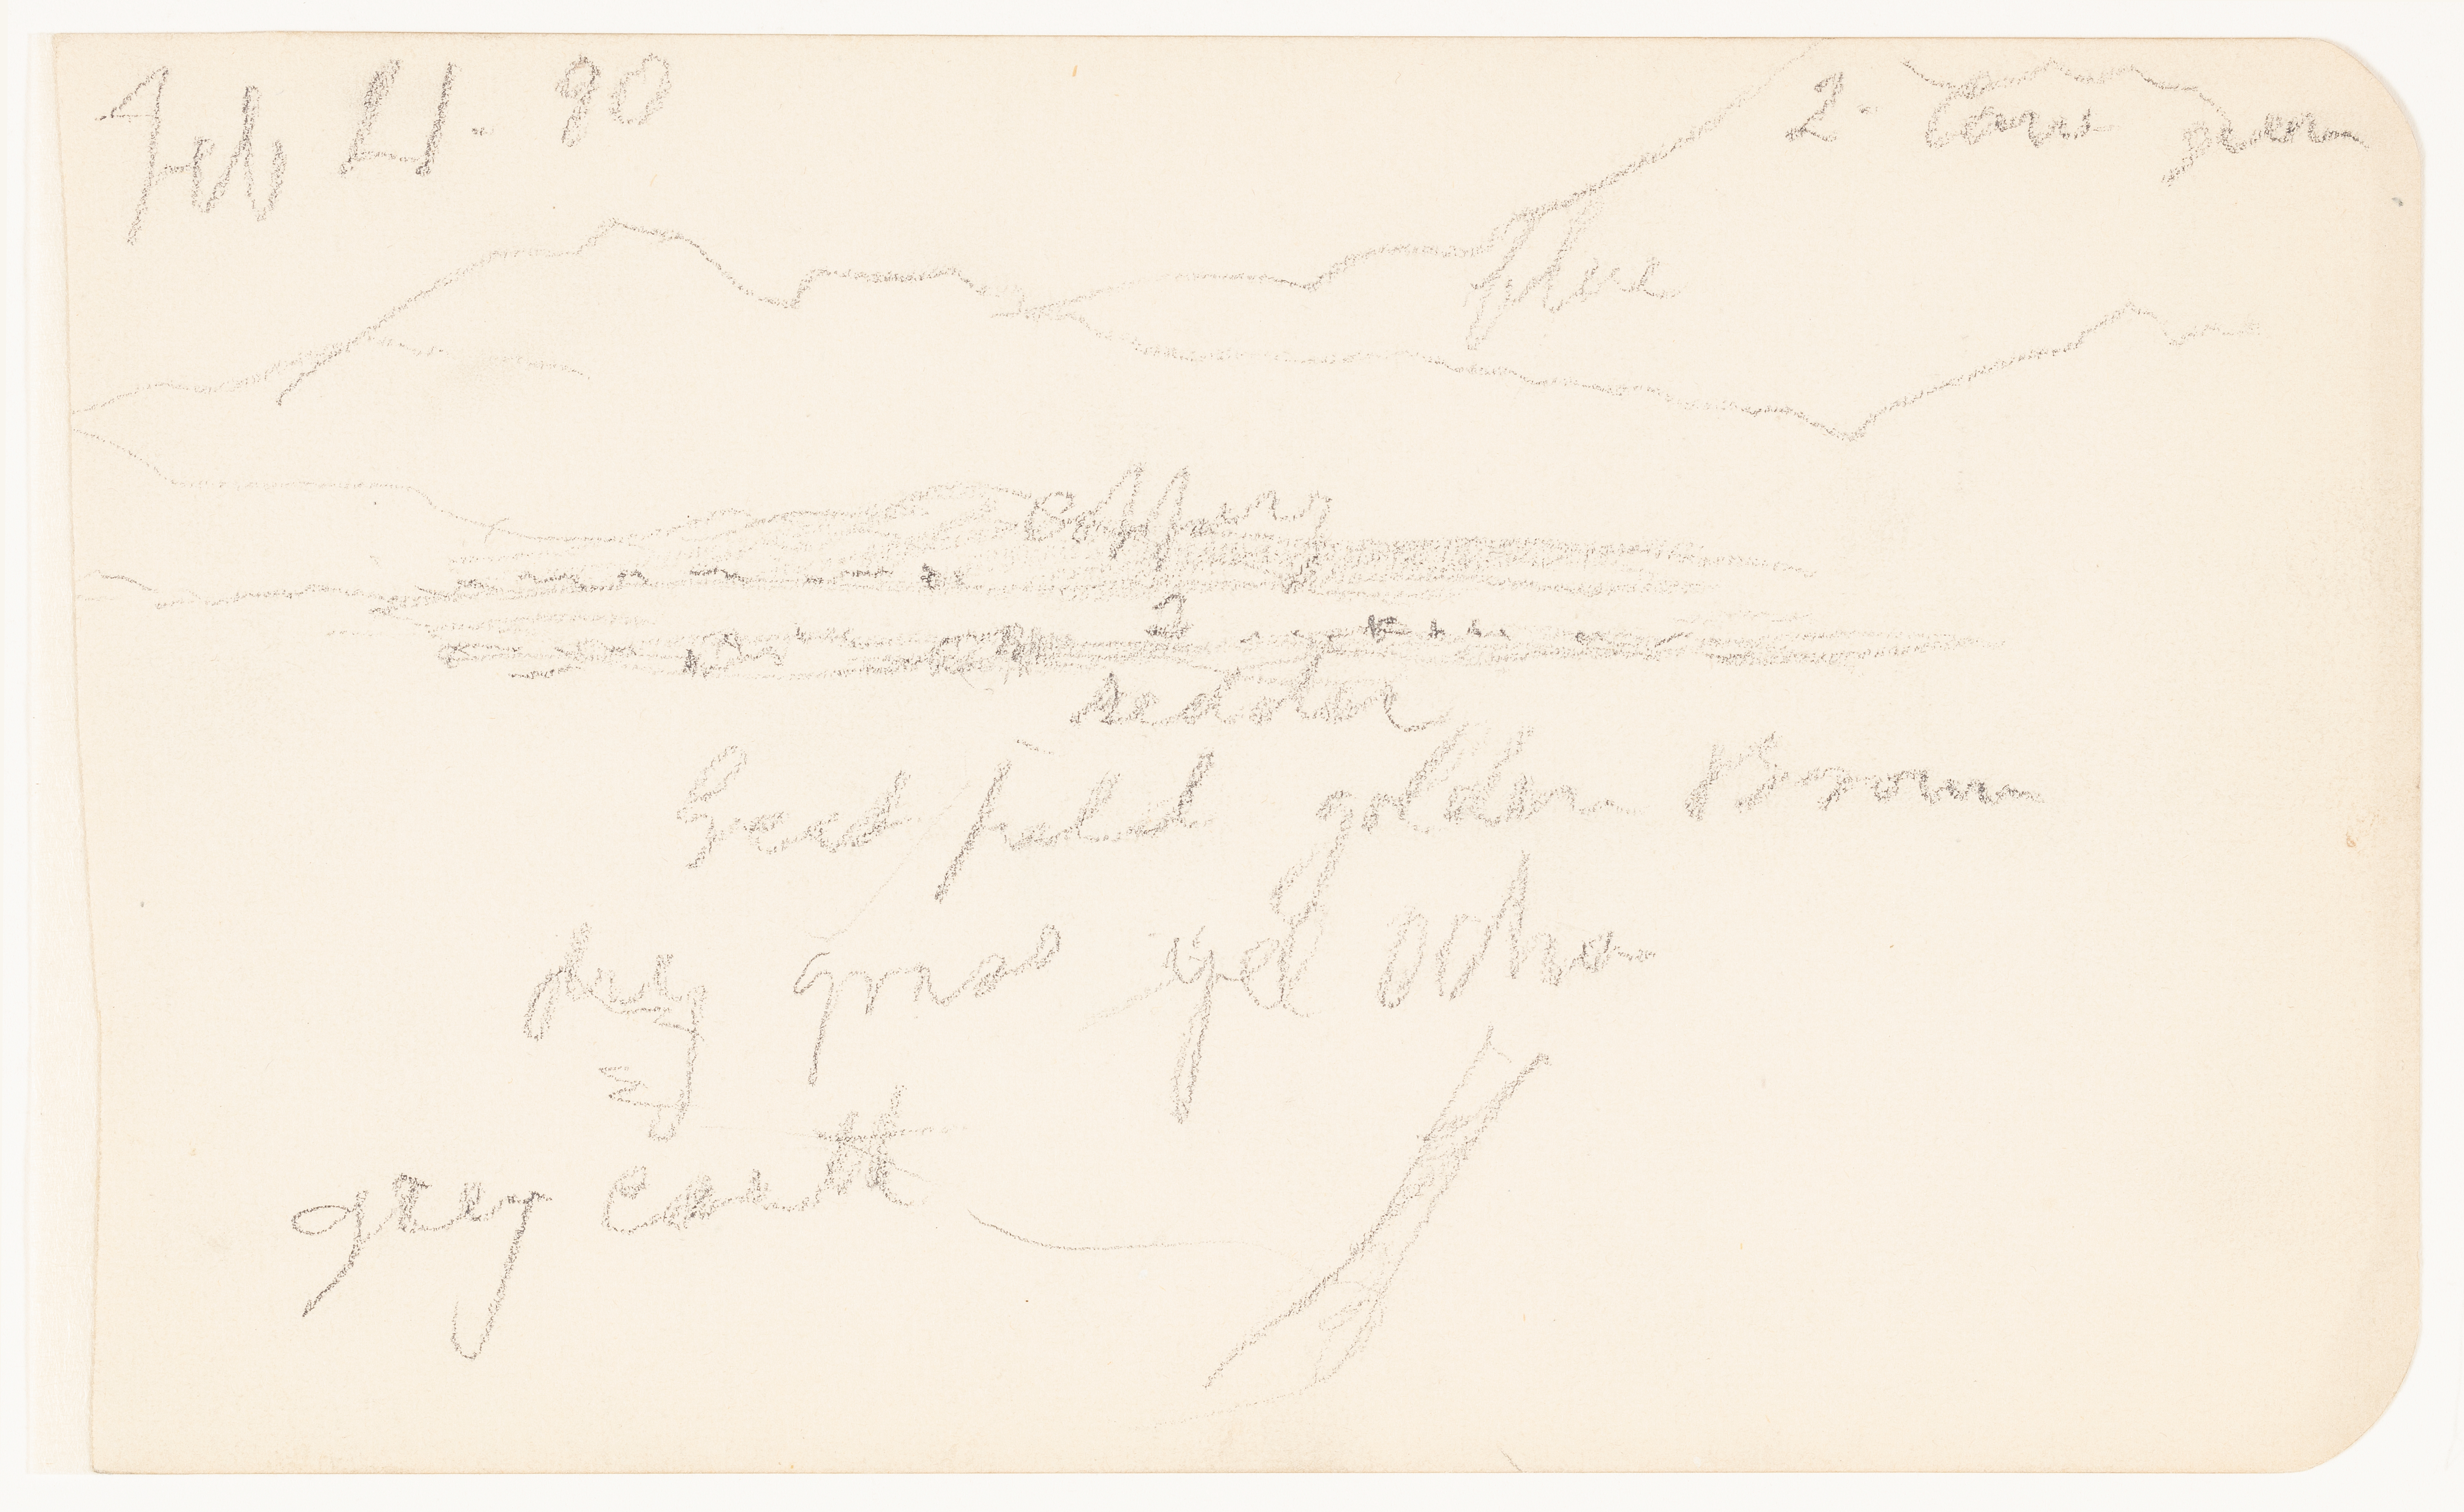 Feb 21. 90
2- Cows green
blue
2
redder
Seed field golden Brown
grass yel Ochre
grey earth